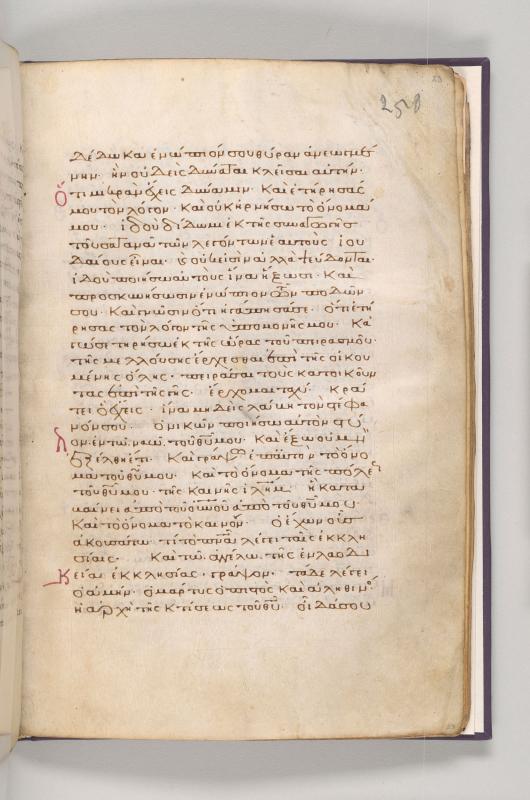 258
δέδωκα ἐνώπιόν σου θύραν ἀνεωγμέ
νην· ἣν οὐδεὶς δύναται κλεῖσαι αὐτήν·
ὅτι μικρὰν ἔχεις δύναμιν· καὶ ἐτήρησάς
μου τὸν λόγον· καὶ οὐκ ἠρνήσω τὸ ὄνομά
μου· ἰδοὺ δίδωμι ἐκ τῆς συναγωγῆς
τοῦ σατανᾶ τῶν λεγόντων ἑαυτοὺς ἰου
δαίους εἶναι· καὶ οὐκ εἰσὶν ἀλλὰ ψεύδονται·
ἰδοὺ ποιήσω αὐτοὺς ἵνα ἥξωσι· καὶ
προσκυνήσωσιν ἐνώπιον τῶν ποδῶν
σου· καὶ γνῶσιν ὅτι ἠγάπησά σε· ὅτι ἐτή
ρησας τὸν λόγον τῆς ὑπομονῆς μου· κα
γώ σε τηρήσω ἐκ τῆς ὥρας τοῦ πειρασμοῦ·
τῆς μελλούσης ἔρχεσθαι ἐπὶ τῆς οἰκου
μένης ὅλης· πειράσαι τοὺς κατοικοῦν
τας ἐπὶ τῆς γῆς· ἔρχομαι ταχύ· κρά
τει ὃ ἔχεις· ἵνα μηδεὶς λάβῃ τὸν στέφα
νόν σου· ὁ νικῶν ποιήσω αὐτὸν στύ
λον ἐν τῷ ναῷ τοῦ θυ μου· καὶ ἔξω οὐ μὴ
ἐξέλθῃ ἔτι· καὶ γράψω ἐπ αὐτὸν τὸ ὄνο
μα τοῦ θυ μου· καὶ τὸ ὄνομα τῆς πόλε
τοῦ θυ μου· τῆς καινῆς ιλημ· ἡ κατα
βαίνει ἀπὸ τοῦ οὐνοῦ ἀπὸ τοῦ θυ μου
καὶ τὸ ὄνομα τὸ καινόν· ὁ ἔχων οὖς
ἀκουσάτω τί τὸ πνα λέγει ταῖς ἐκκλη
σίαις· καὶ τῷ ἀγγέλῳ τῆς ἐν λαοδι
κείᾳ ἐκκλησίας· γράψον· τάδε λέγει
ὁ ἀμήν· ὁ μάρτυς ὁ πιστὸς καὶ ἀληθινό
ἡ ἀρχὴ τῆς κτίσεως τοῦ θυ· οἶδά σου